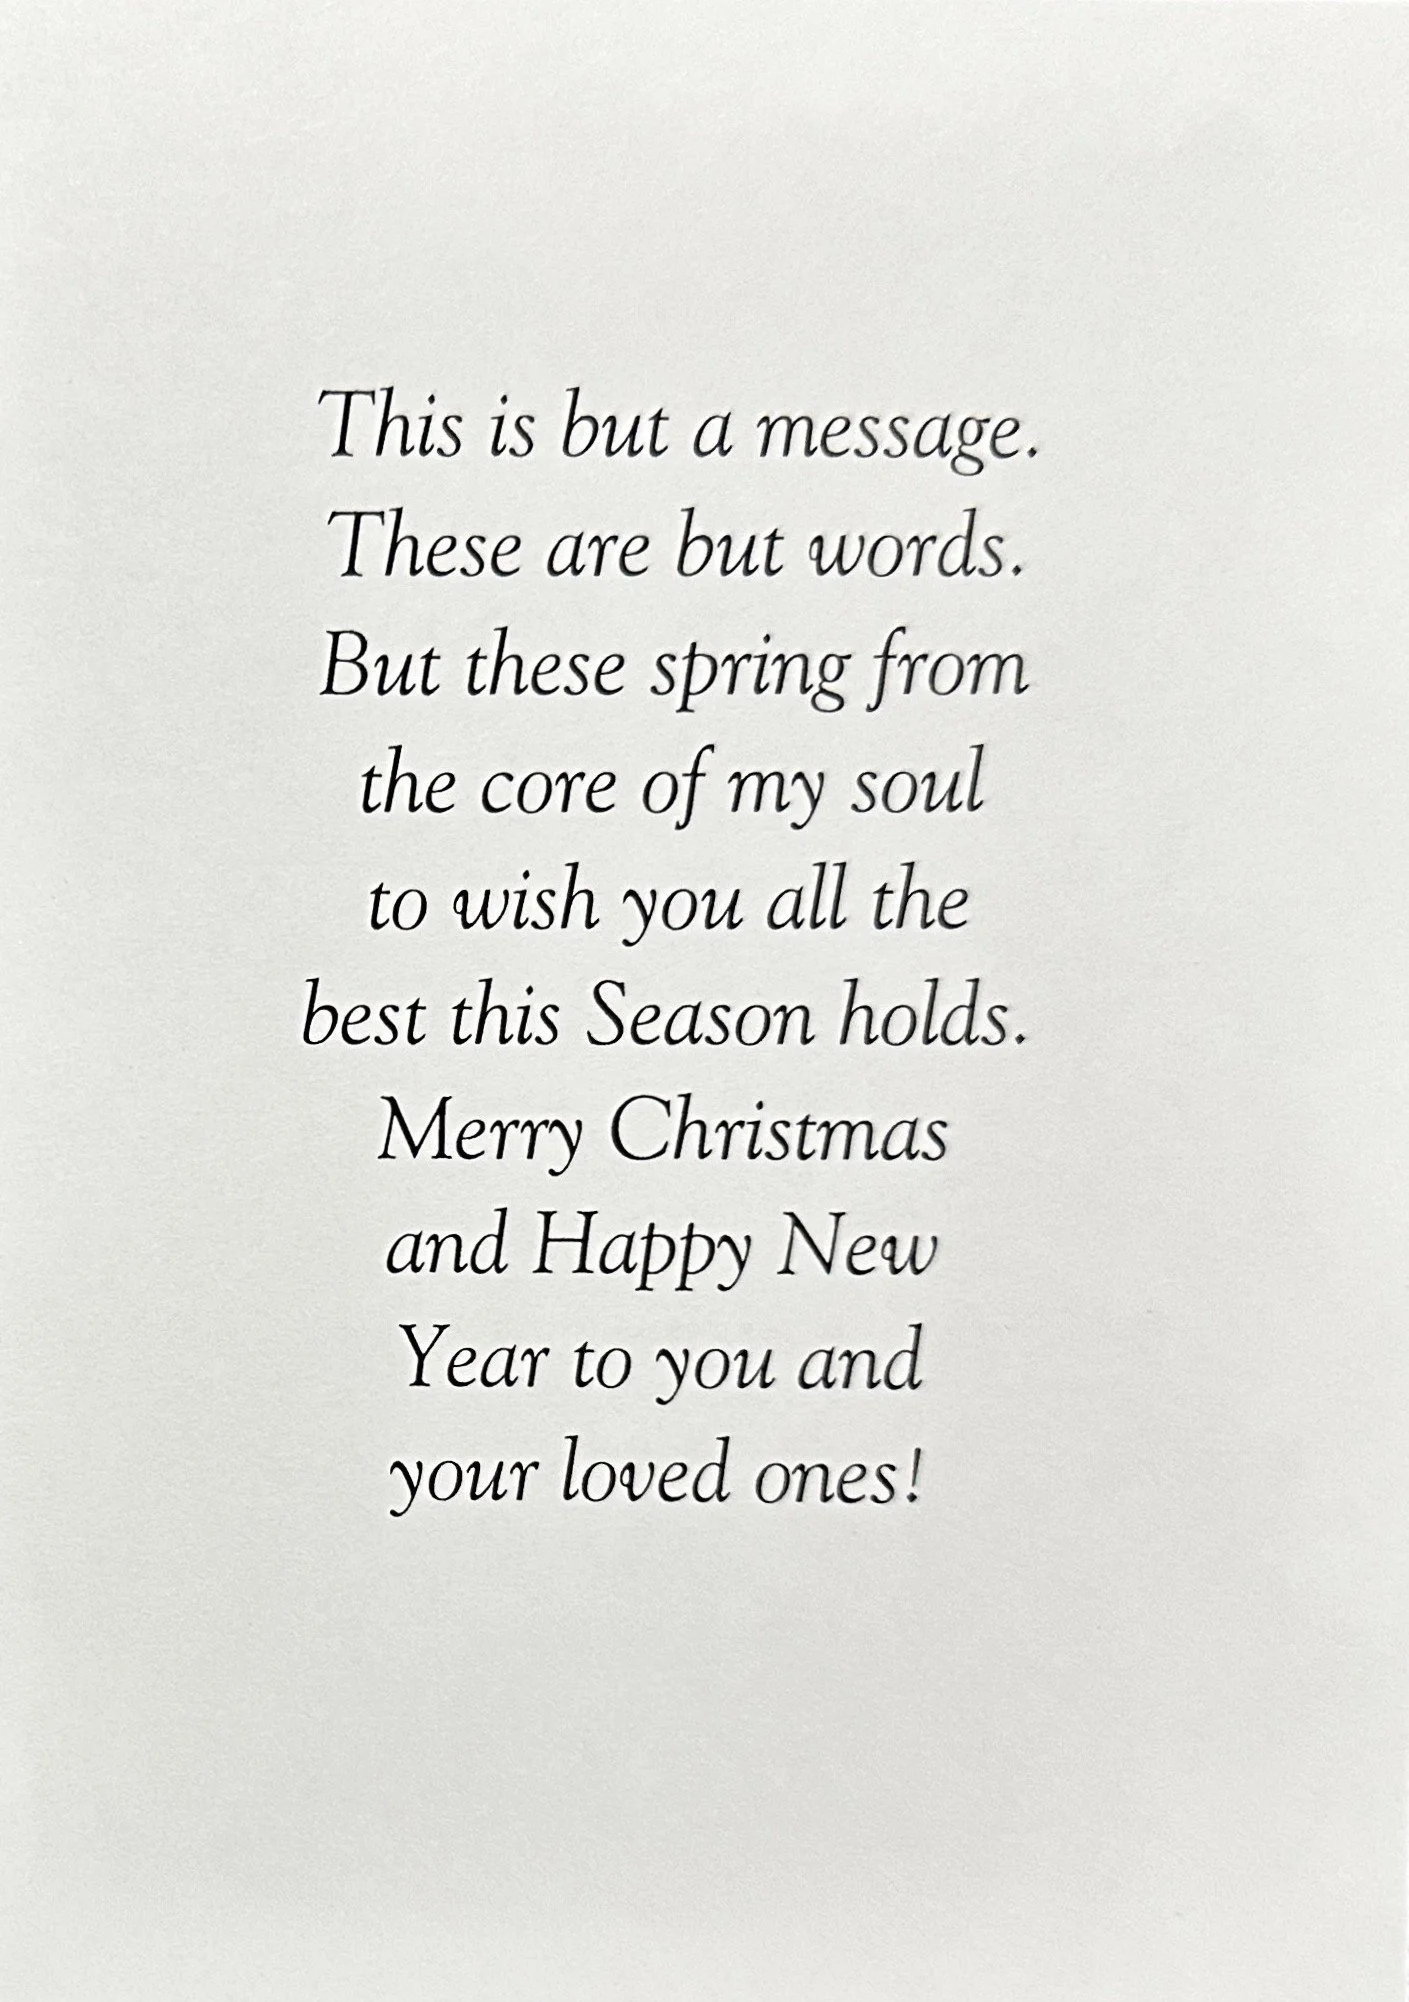 This is but a message.
These are but words.
But these spring from
the core of my soul
to wish you all the
best this Season holds.
Merry Christmas
and Happy New
Year to you and
your loved ones!